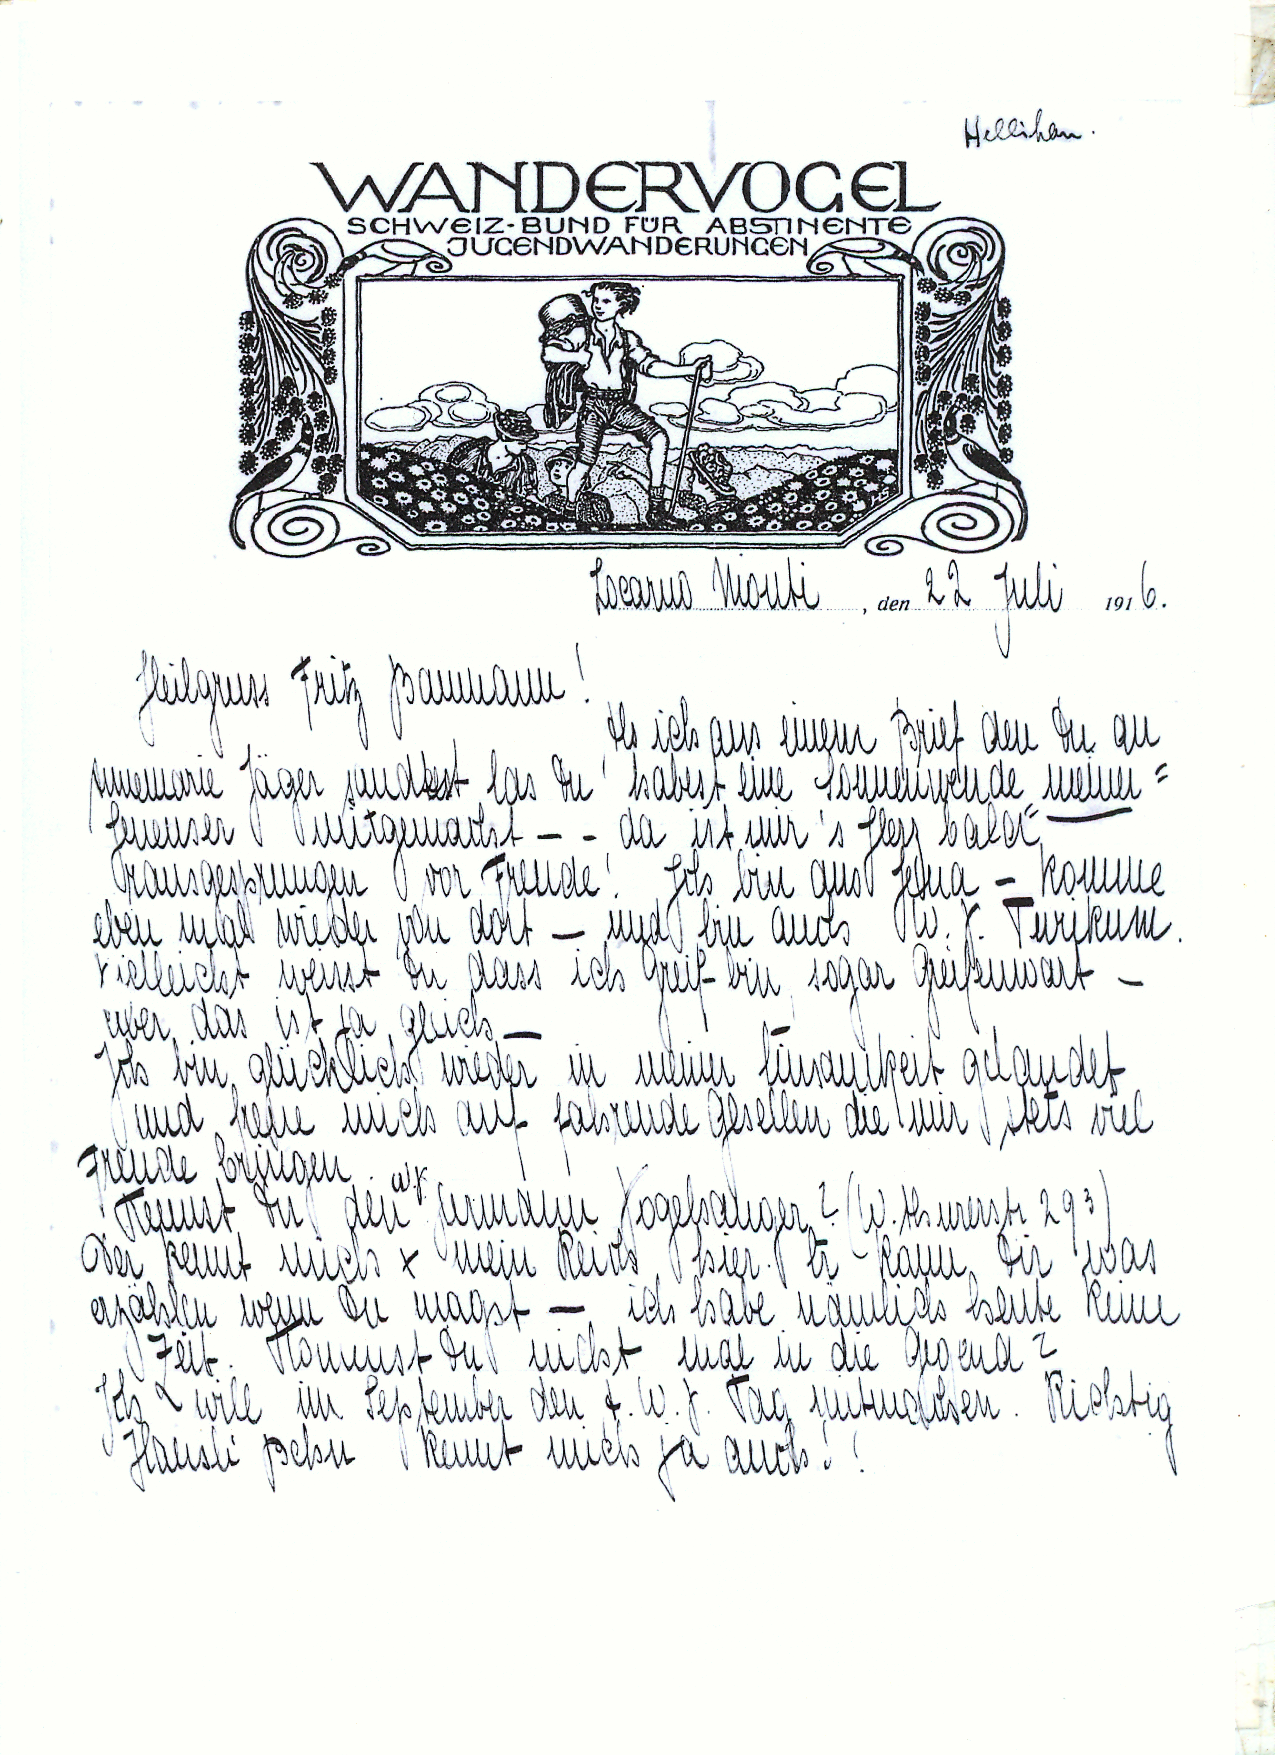 Hellishan.
WANDERVOGEL
SCHWEIZ-BUND FÜR ABSTINENTE
JUGENDWANDERUNGEN
Locarno Monti, den 22 Juli 1916.
Heilgruss Fritz Baumann!
Als ich aus einem Brief den Du an
Annemarie Jäger sandtest las Du habest eine Sonnenwende meiner=
Jenenser mitgemacht – – da ist mir 's Herz bald
rausgesprungen vor Freude! Ich bin aus Jena – komme
eben mal wieder von dort – und bin auch W.V. Turikum.
Vielleicht weisst Du dass ich Greif bin, sogar Greifenwart –
aber das ist ja gleich –
Ich bin glücklich wieder in meiner Einsamkeit gelandet
und freue mich auf fahrende Gesellen die mir stets viel
Freude bringen.
Kennst Du den W.V. Hermann Vogelsanger? (W.thurerstr 293)
Der kennt mich + mein Reich hier. Er kann Dir was
erzählen wenn Du magst – ich habe nämlich heute keine
Zeit. Kommst Du nicht mal in die Gegend?
Ich will im September den W.V. Tag mitmachen. Richtig
Hansli Behn kennt mich ja auch!!